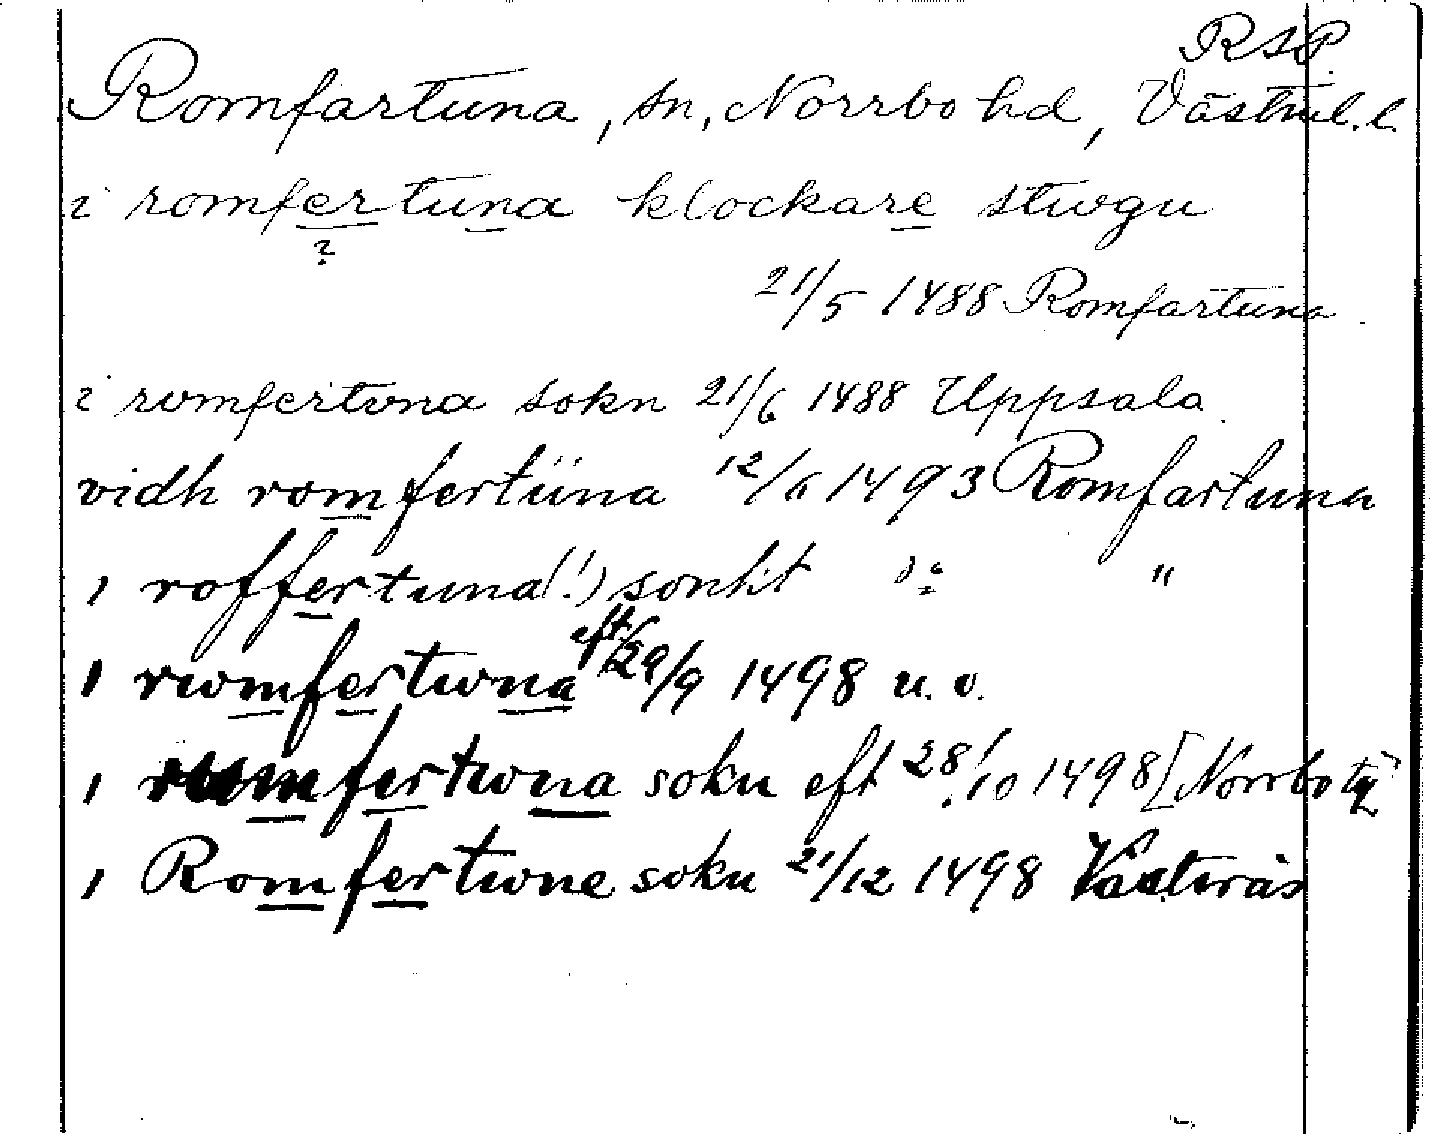 RSP.
Romfartuna, sn, Norrbo hd, Västml. l.
i romfertuna klockare stwgu
?
21/5 1488 Romfartuna.
i romfertvna sokn 21/6 1488 Uppsala.
vidh romfertüna 12/6 1493 Romfartuna
i roffertuna(!) sonkt do "
i rwmfertwna eft 29/9 1498 u. o.
i rumfertwna sokn eft 28/10 1498 [Norrbo
i Romfertwne sokn 21/12 1498 Västerås